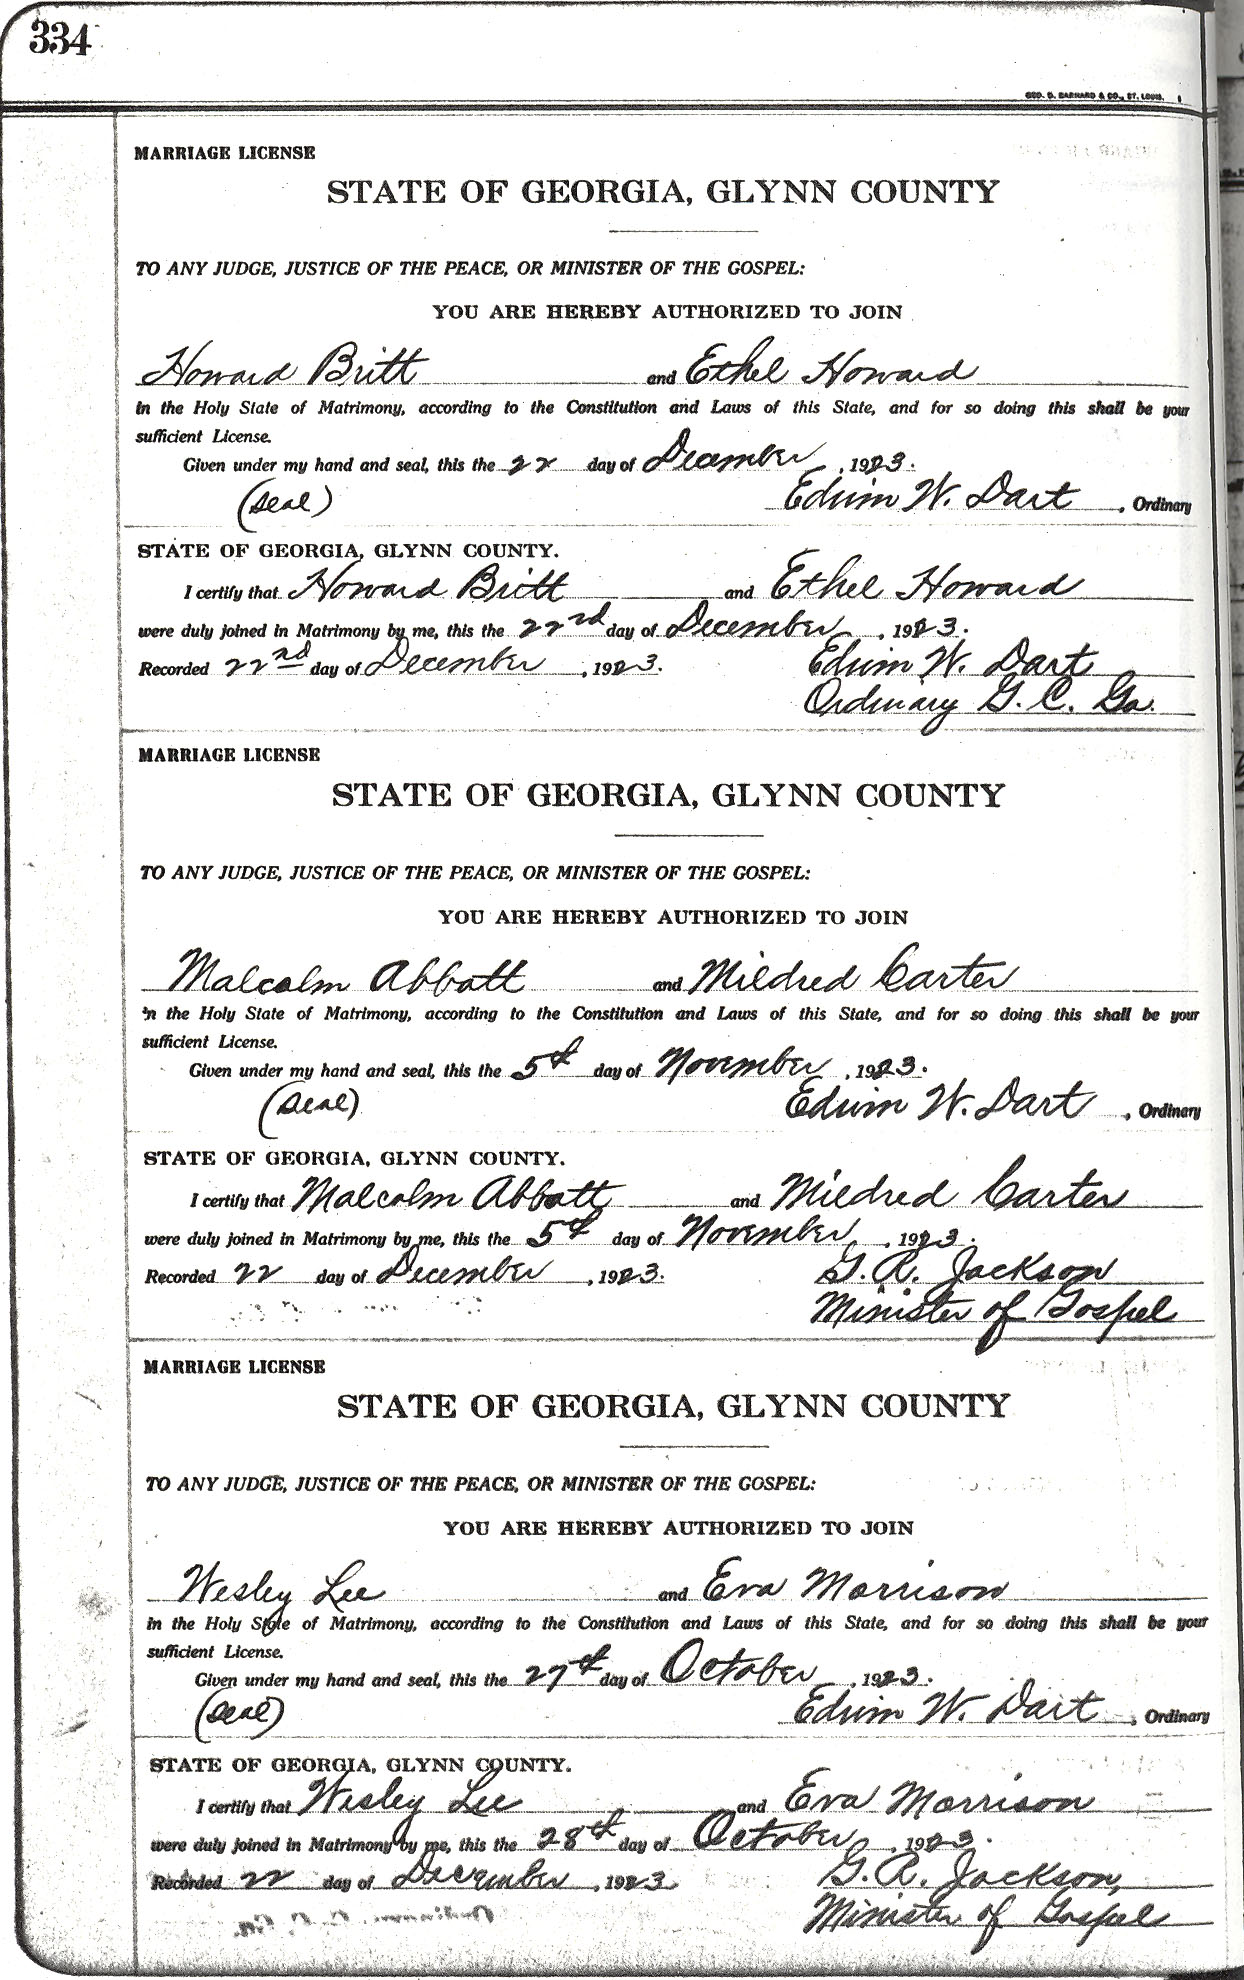 334
GEO. D. BARNARD & CO., ST. LOUIS.
MARRIAGE LICENSE
STATE OF GEORGIA, GLYNN COUNTY
TO ANY JUDGE, JUSTICE OF THE PEACE, OR MINISTER OF THE GOSPEL:
YOU ARE HEREBY AUTHORIZED TO JOIN
Howard Britt and Ethel Howard
in the Holy State of Matrimony, according to the Constitution and Laws of this State, and for so doing this shall be your
sufficient License.
Given under my hand and seal, this the 22 day of December, 1923.
(Seal) Edwin W. Dart, Ordinary
STATE OF GEORGIA, GLYNN COUNTY.
I certify that Howard Britt and Ethel Howard
were duly joined in Matrimony by me, this the 22nd day of December, 1923.
Recorded 22nd day of December, 1923. Edwin W. Dart
Ordinary G. C. Ga.
MARRIAGE LICENSE
STATE OF GEORGIA, GLYNN COUNTY
TO ANY JUDGE, JUSTICE OF THE PEACE, OR MINISTER OF THE GOSPEL:
YOU ARE HEREBY AUTHORIZED TO JOIN
Malcolm Abbott and Mildred Carter
in the Holy State of Matrimony, according to the Constitution and Laws of this State, and for so doing this shall be your
sufficient License.
Given under my hand and seal, this the 5th day of November, 1923.
(Seal) Edwin W. Dart, Ordinary
STATE OF GEORGIA, GLYNN COUNTY.
I certify that Malcolm Abbott and Mildred Carter
were duly joined in Matrimony by me, this the 5th day of November, 1923.
Recorded 22 day of December, 1923. G. R. Jackson
Minister of Gospel
MARRIAGE LICENSE
STATE OF GEORGIA, GLYNN COUNTY
TO ANY JUDGE, JUSTICE OF THE PEACE, OR MINISTER OF THE GOSPEL:
YOU ARE HEREBY AUTHORIZED TO JOIN
Wesley Lee and Eva Morrison
in the Holy State of Matrimony, according to the Constitution and Laws of this State, and for so doing this shall be your
sufficient License.
Given under my hand and seal, this the 27th day of October, 1923.
(Seal) Edwin W. Dart, Ordinary
STATE OF GEORGIA, GLYNN COUNTY.
I certify that Wesley Lee and Eva Morrison
were duly joined in Matrimony by me, this the 28th day of October, 1923.
Recorded 22 day of December, 1923 G. R. Jackson,
Minister of Gospel